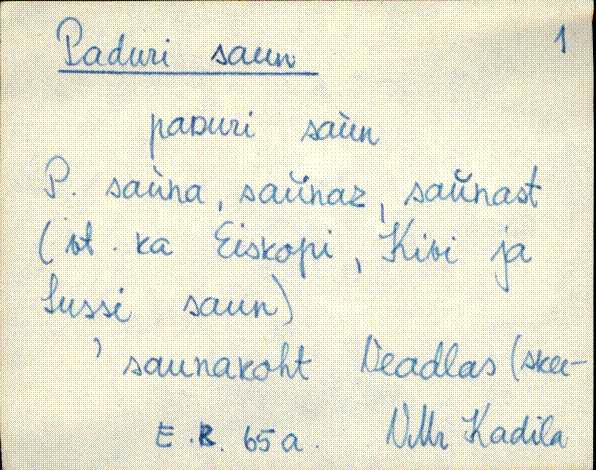 Paduri saun 1
paᴅuri saùn
P. saùna, saŭnaz, saŭnast
(vt. ka Eiskopi, Kivi ja
Sussi saun)
, saunakoht Deadlas (skee-
E.R. 65 a. Kadila